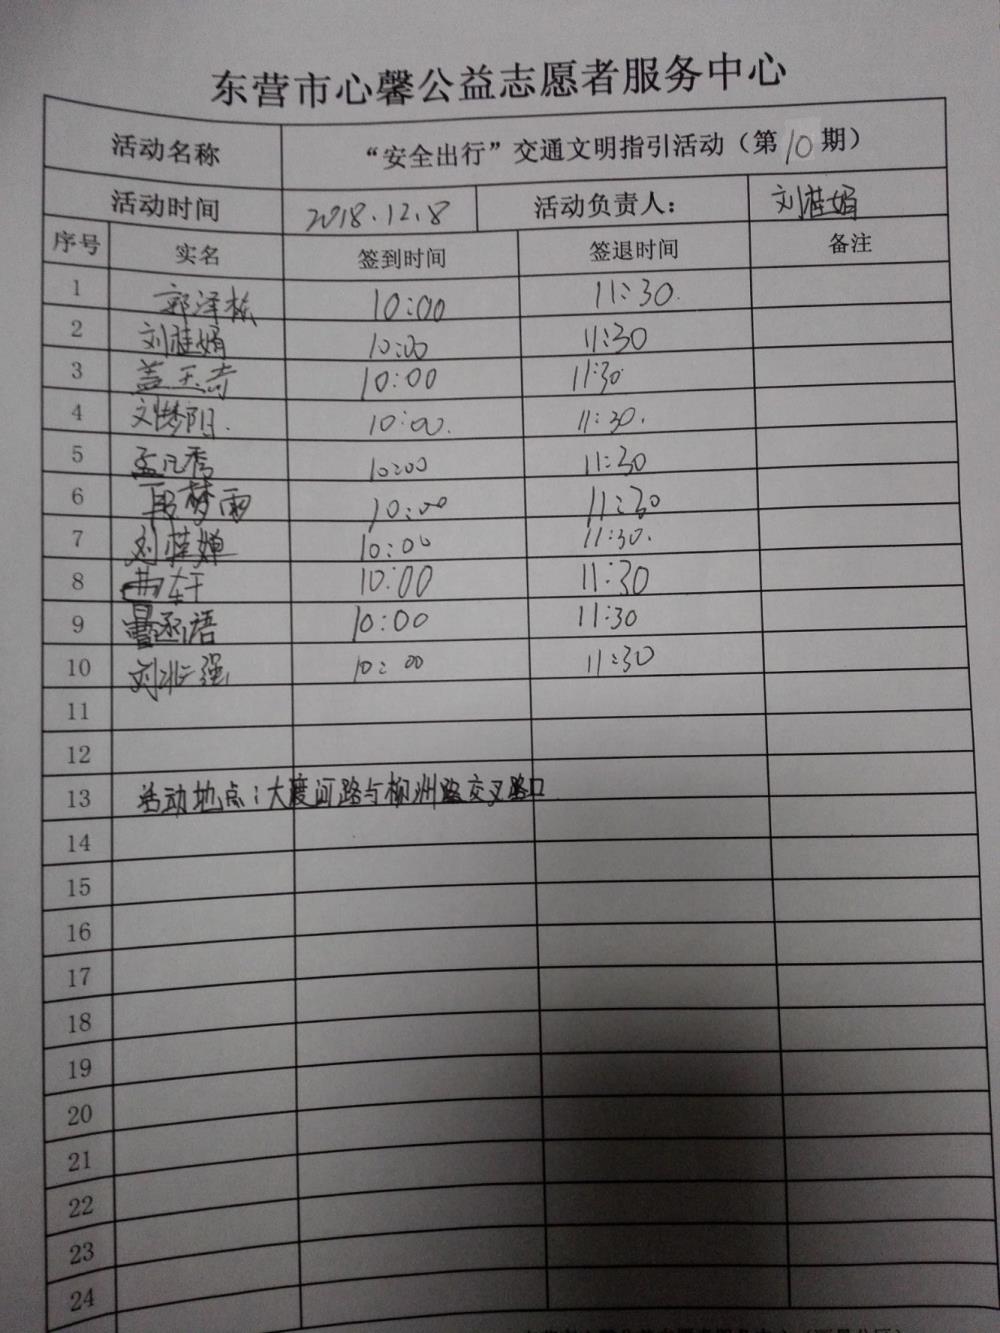 东营市心馨公益志愿者服务中心
活动名称 “安全出行”交通文明指引活动（第10期）
活动时间 2018.12.8 活动负责人： 刘桂娟
序号 实名 签到时间 签退时间 备注
1 郭泽栋 10:00 11:30.
2 刘桂娟 10:00 11:30
3 盖玉 10:00 11:30
4 刘梦阳. 10:00. 11:30.
5 孟凡秀 10:00 11:30
6 段梦雨 10:00 11:30
7 刘桂婵 10:00 11:30.
8 曲轩 10:00 11:30
9 语 10:00 11:30
10 刘 强 10:00 11:30
11
12
13 活动地点：大渡河路与柳洲路交叉路口
14
15
16
17
18
19
20
21
22
23
24